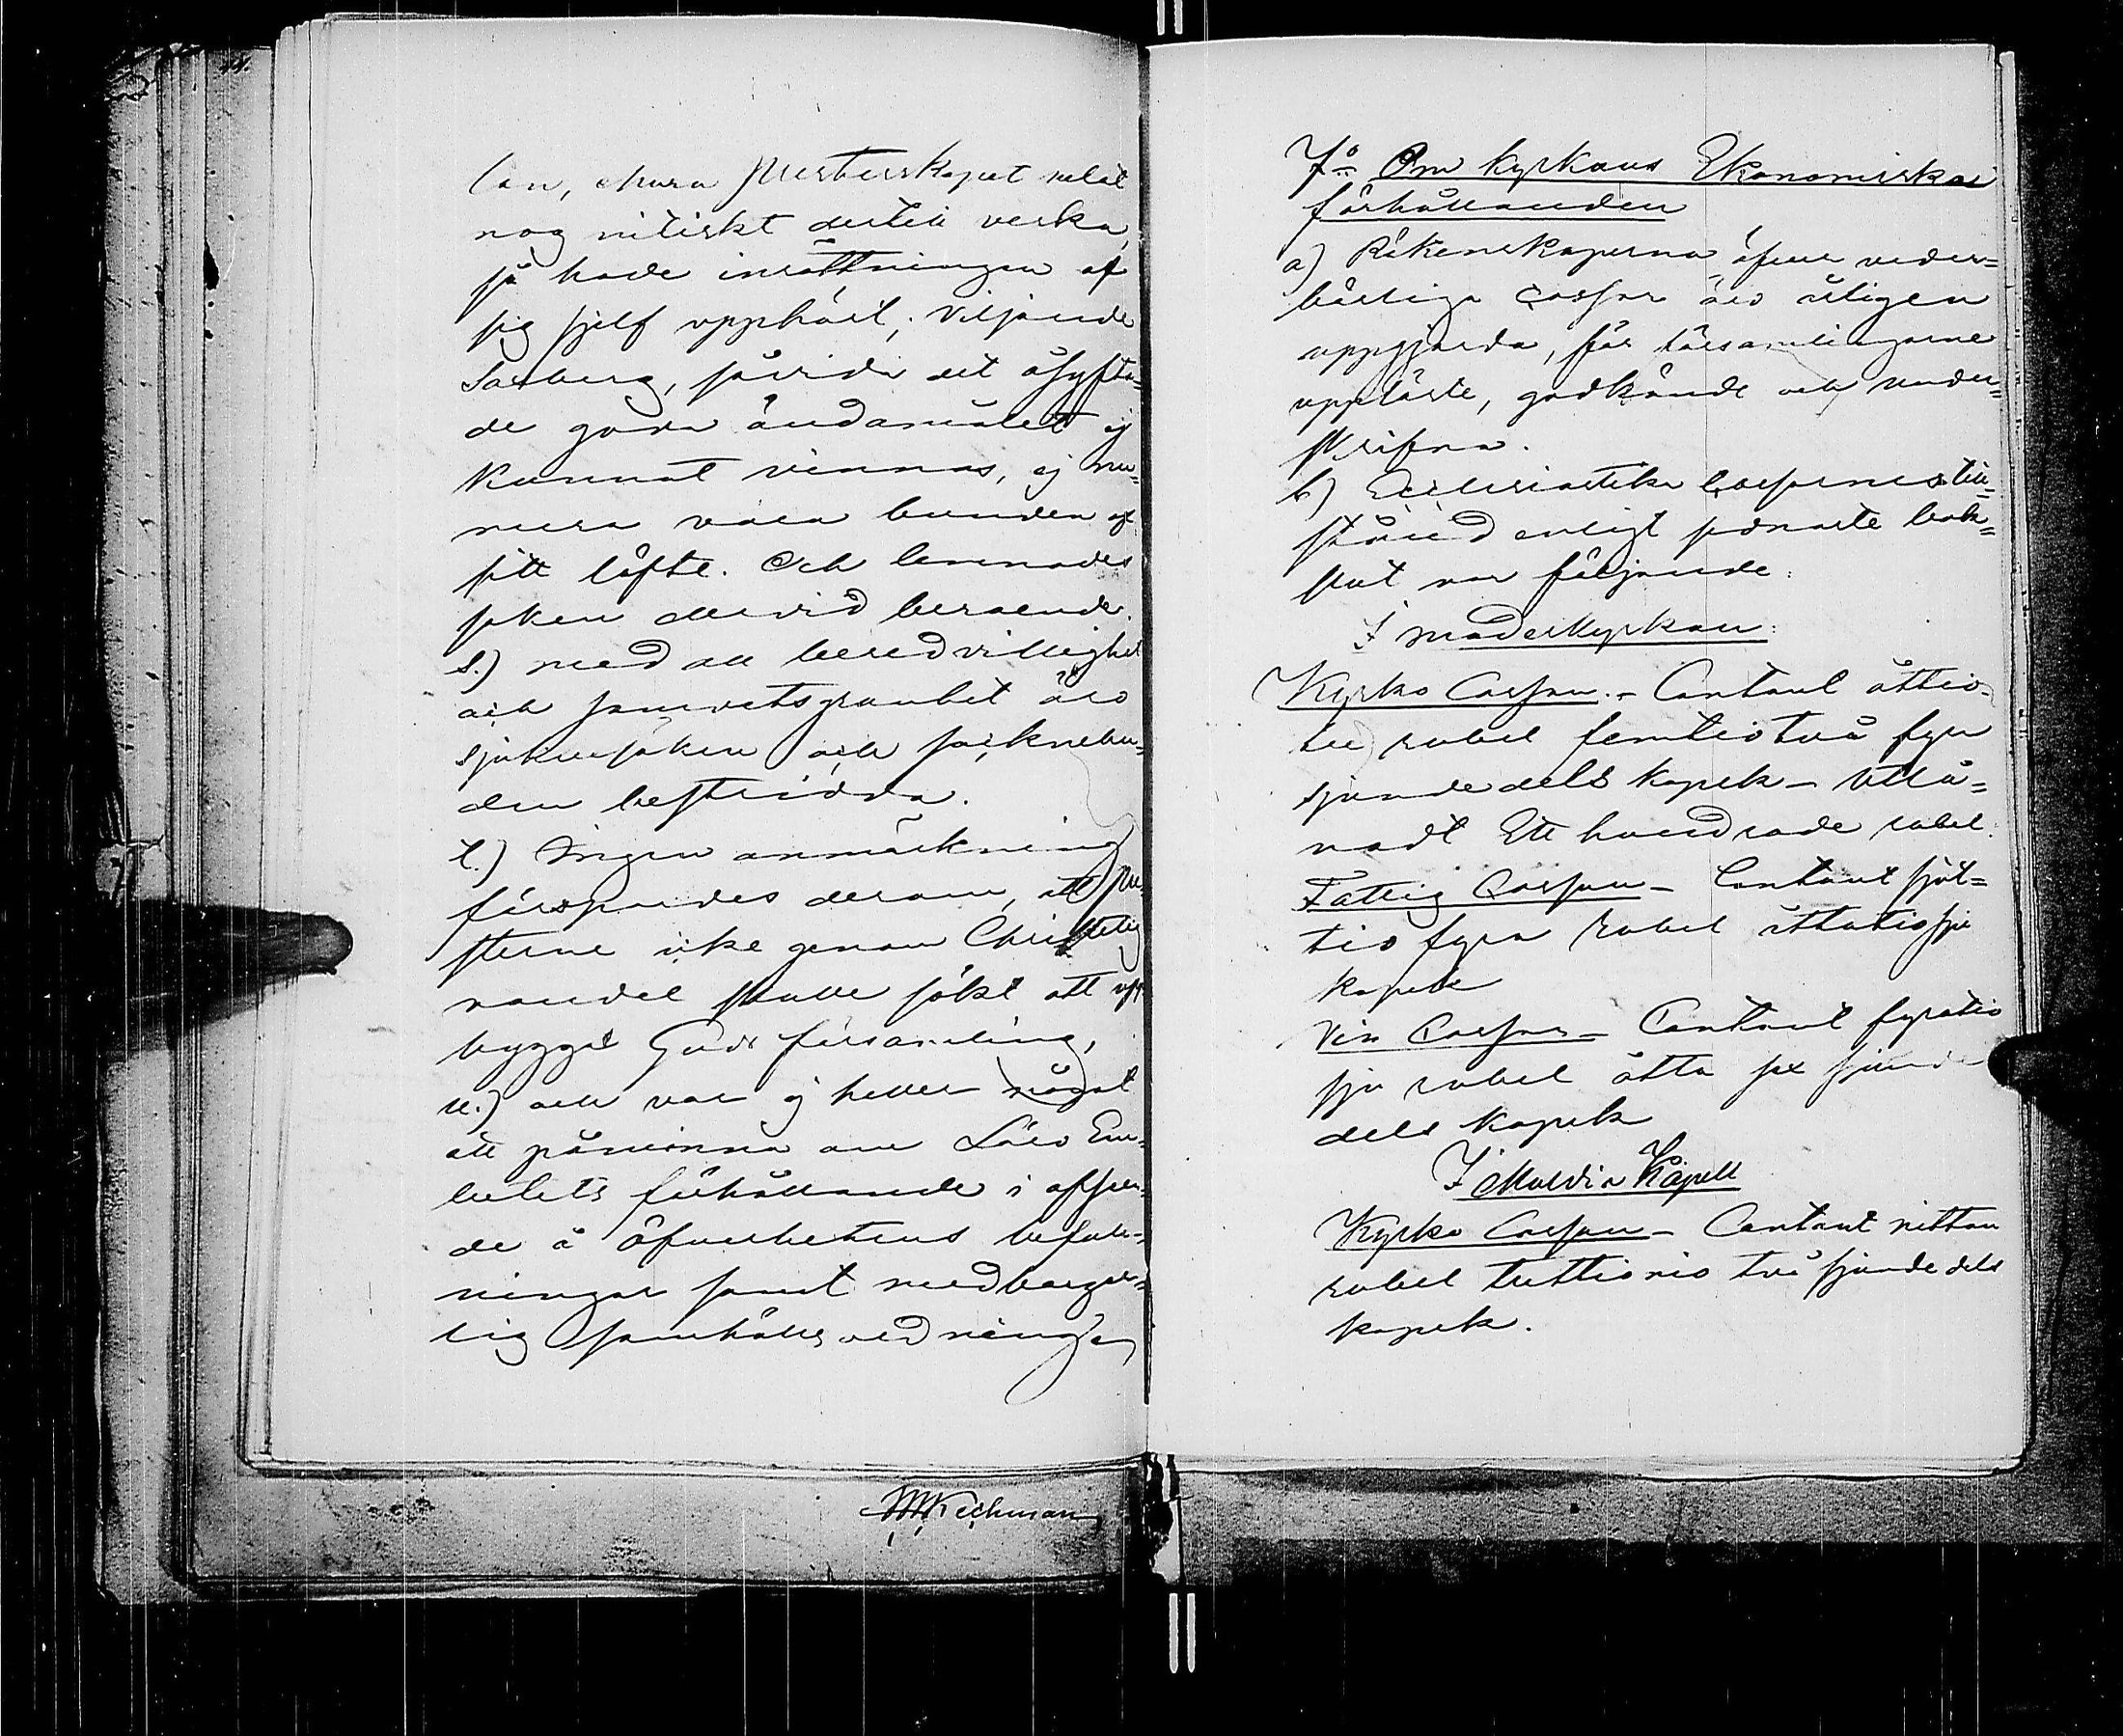 44.
lan, ehuru Presterskapet velat
nog nitiskt dertill verka,
så hade inrättningen af
sig sjelf upphört; viljande
Saxberg, sävida det åsyfta-
de goda ändamålet ej
kunnat vinnas, ej nu-
mera vara bunden af
sitt löfte. Och lemnades
saken dervid beroende.
s.) med all beredvillighet
och samvetsgranhet äro
sjukbesöken och socknebu-
den bestridda.
t.) Ingen anmärkning
förspordes derom, att pre-
sterne icke genom Christelig
vandel skulle sökt att upp-
bygga Guds församling,
u.) och var ej heller något
att påminna om Läro Em-
betets förhållande i afseen-
de å Öfverhetens befall-
ningar samt medborger-
lig samhällsordning
MWKechman
7:o Om kyrkans Ekonomiska
förhållanden
a) Räkenskaperna öfver veder-
börliga Cassor äro årligen
uppgjorda, för församlingarne
uppläste, godkände och under-
skrifna.
b) Ecclesiastike Cassornes till-
stånd enligt sednaste bok-
slut var följande:
I moderkyrkan:
Kyrko Cassan. - Contant åttio-
tre rubel femtiotvå fyra
sjundedels kopek - Utlå-
nadt Ett hundrade rubel.
Fattig Cassan - Contant sjut-
tio fyra rubel åttatiosju
kopek
Vin Cassan - Contant fyratio
sju rubel åtta sex sjunde
dels kopek
I Muldia Kapell
Kyrko Cassan - Contant nitton
rubel trettionio två sjundedels
kopek.